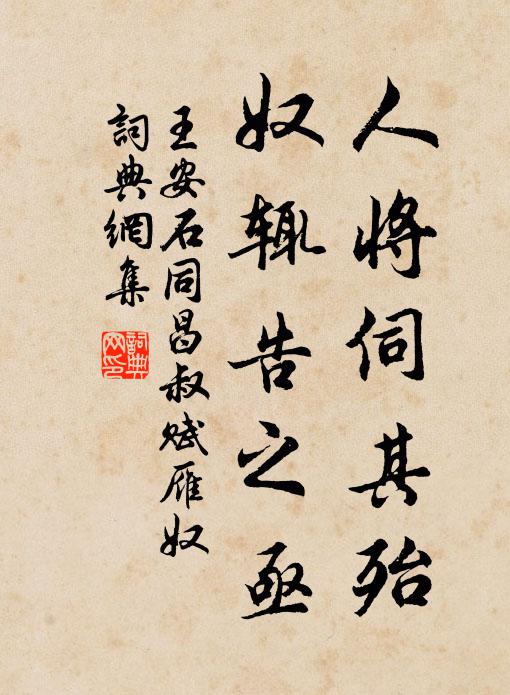 人将伺其殆
奴辄告之亟
王安石同昌叔赋雁奴
詞典網集
詞典
网印